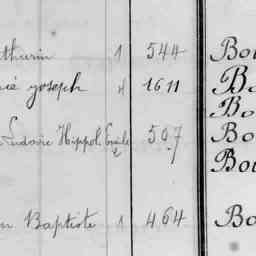 thurin 1 544 Bou
cié joseph 4 1611 Bo
Bo
Ludovic Hippol Emile 2 507 Bo
Bou
n Baptiste 1 464 Bo